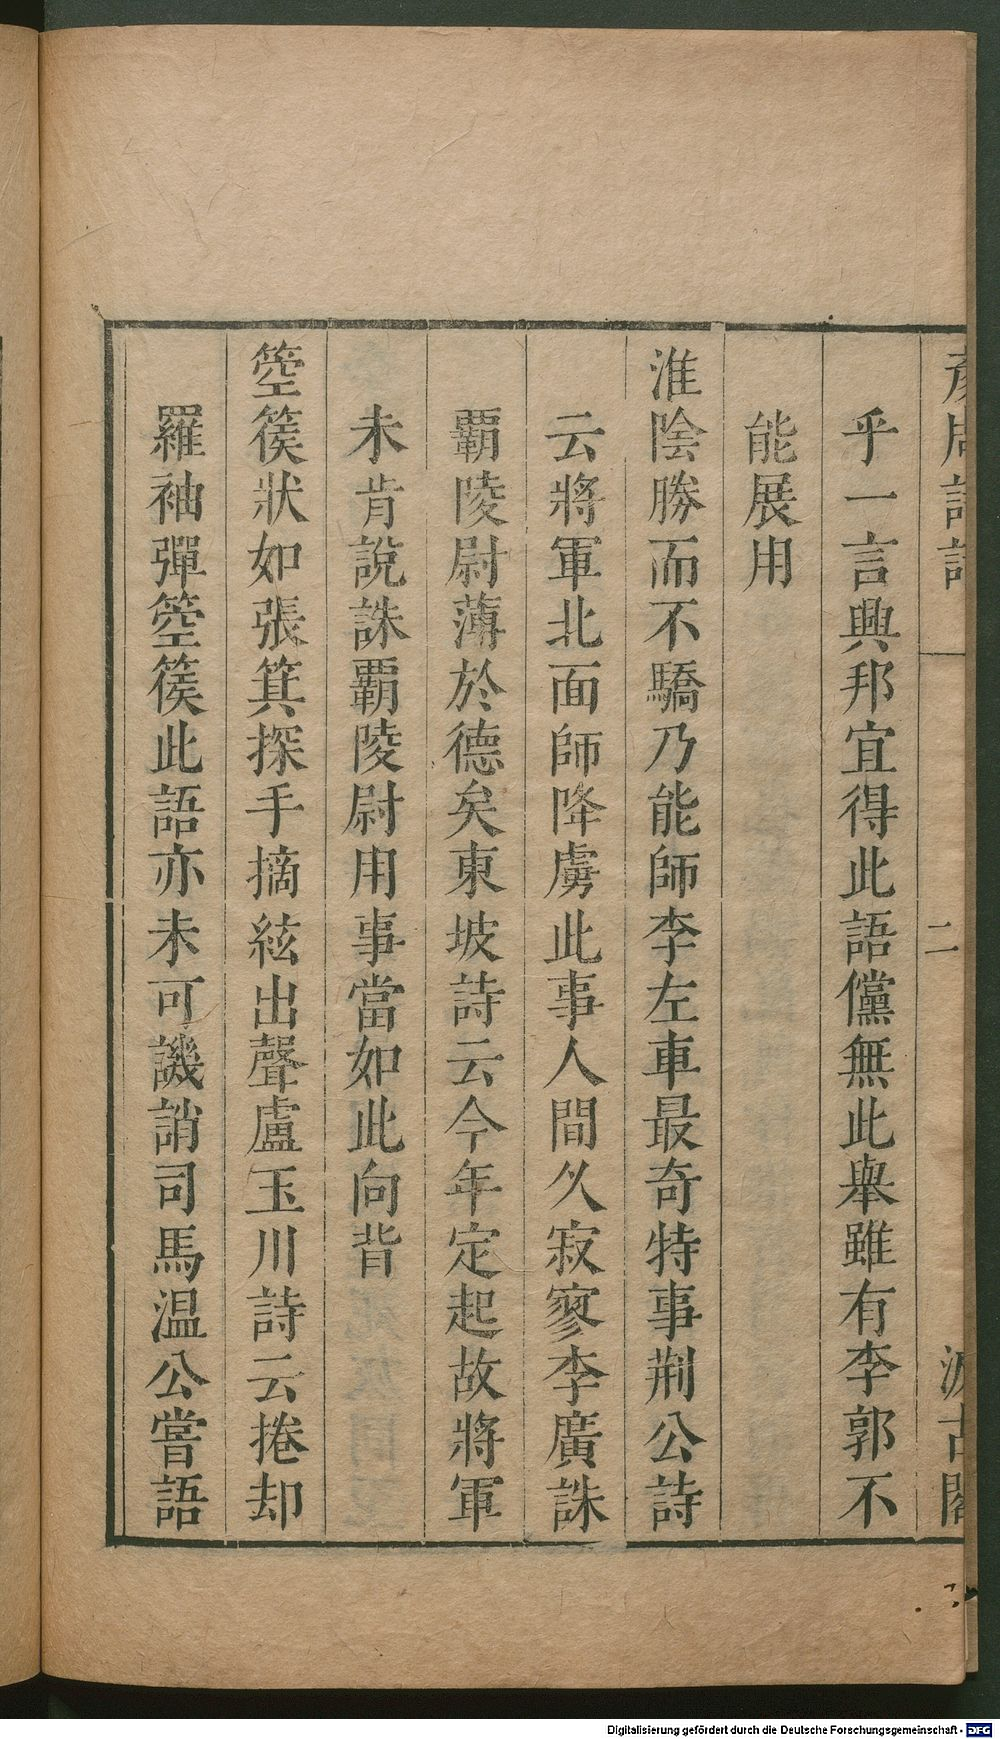 彥周詩話
二
汲古閣
乎一言興邦宜得此語儻無此舉雖有李郭不
能展用
淮陰勝而不驕乃能師李左車最奇特事荆公詩
云將軍北面師降虜此事人間久寂寥李廣誅
霸陵尉薄於德矣東坡詩云今年定起故將軍
未肯說誅霸陵尉用事當如此向背
箜篌狀如張箕探手摘絃出聲盧玉川詩云捲却
羅袖彈箜篌此語亦未可譏誚司馬温公嘗語
Digitalisierung gefördert durch die Deutsche Forschungsgemeinschaft - DFG